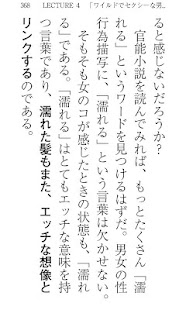 368　LECTURE 4　「ワイルドでセクシーな男。
ると感じないだろうか？
官能小説を読んでみれば、もっとたくさん「濡
れる」というワードを見つけるはずだ。男女の性
行為描写に、「濡れる」という言葉は欠かせない。
そもそも女のコが感じたときの状態も、「濡れ
る」である。「濡れる」はとてもエッチな意味を持
つ言葉であり、濡れた髪もまた、エッチな想像と
リンクするのである。